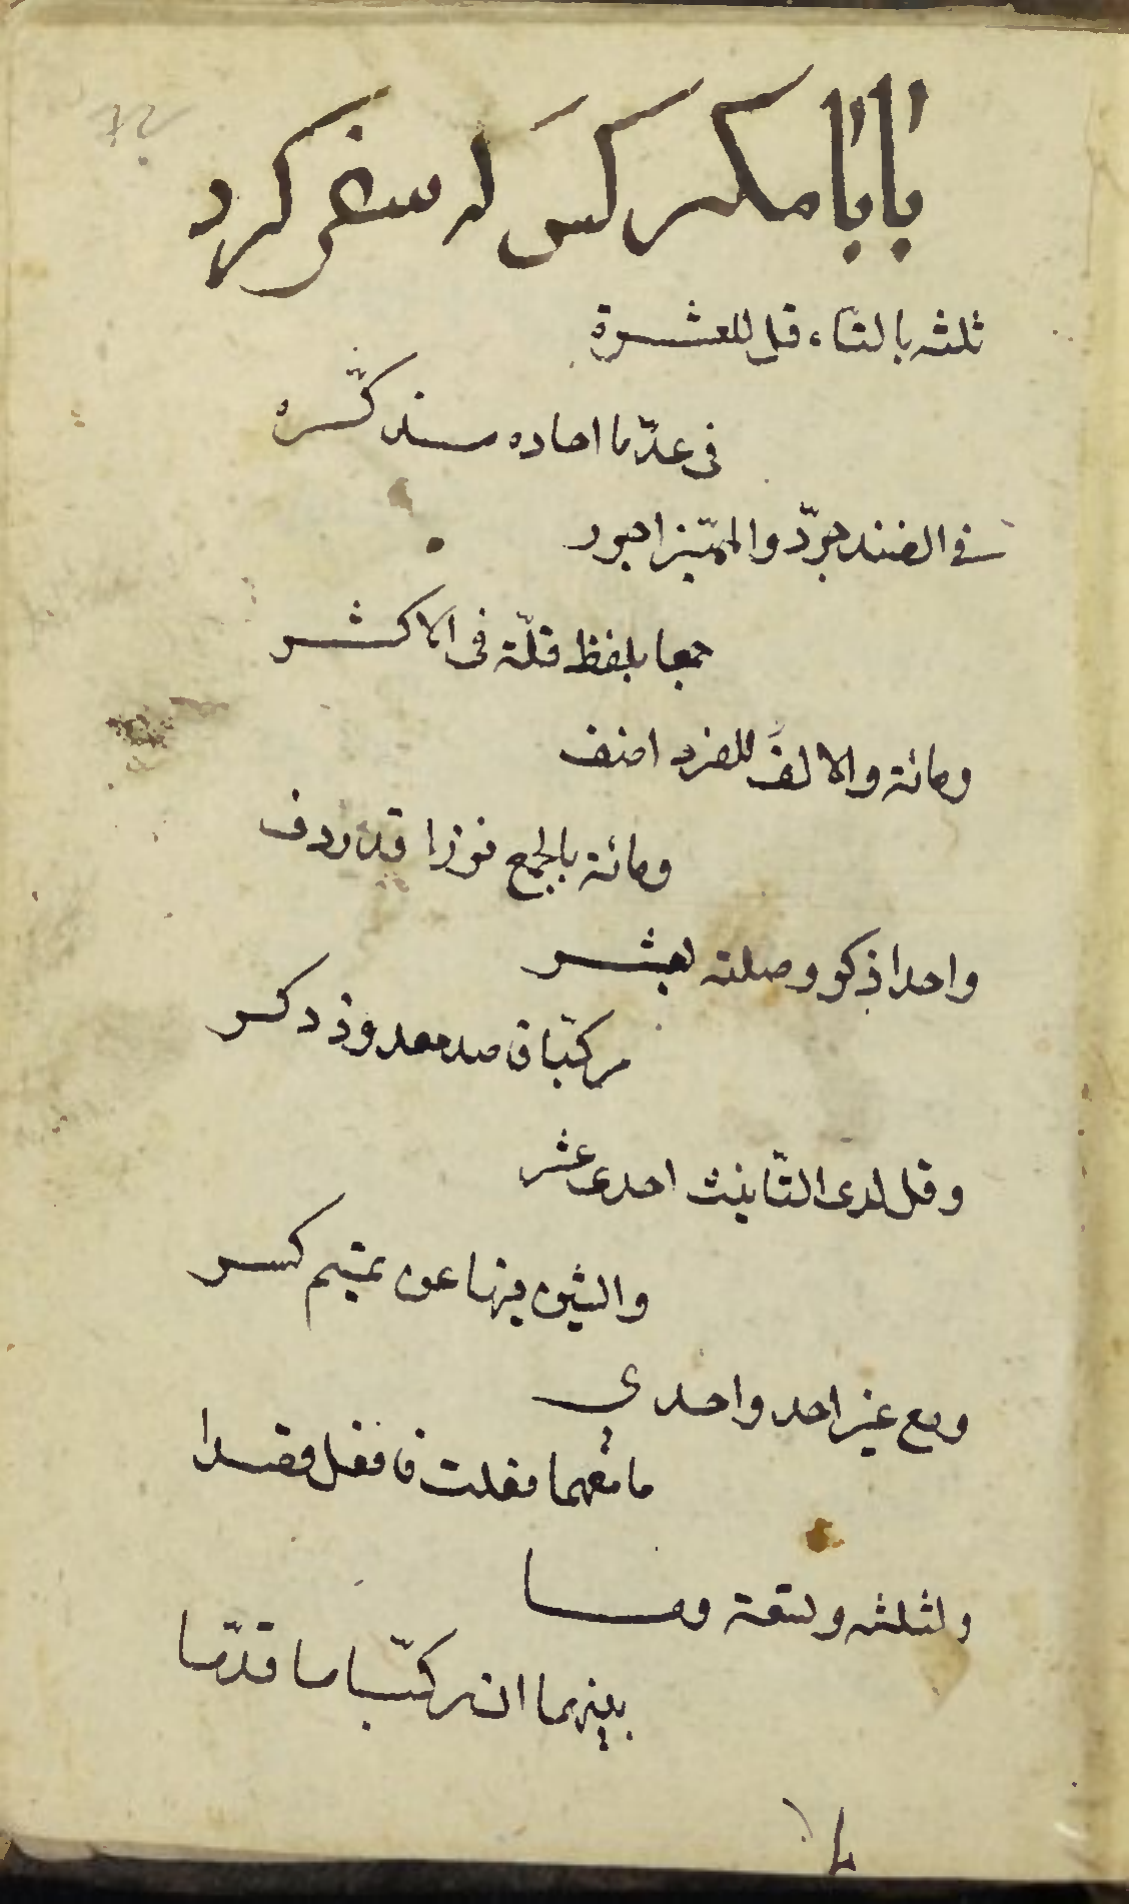 بابا مكر كس له سفر كرد
ثلثه بالتاء قل للعشرة
فى عدّ ما احاده مذكّره
فى الضد جرّد والمميّز اجرر
جمعا بلفظ قلّة فى الاكثر
ومائة والالف للفرد اضف
ومائة بالجمع نوزا قد ردف
واحد اذكر وصلنه بعشر
مركّبا قاصد معدود ذكر
وقل لدى التّانيث احدى عشر
والشين فيها عن تميم كسر
ومع غير احد واحدي
ما معهما فعلت فافعل قصدا
ولثلثه وتسعة وما
بينهما ان ركّبا ما قدّما